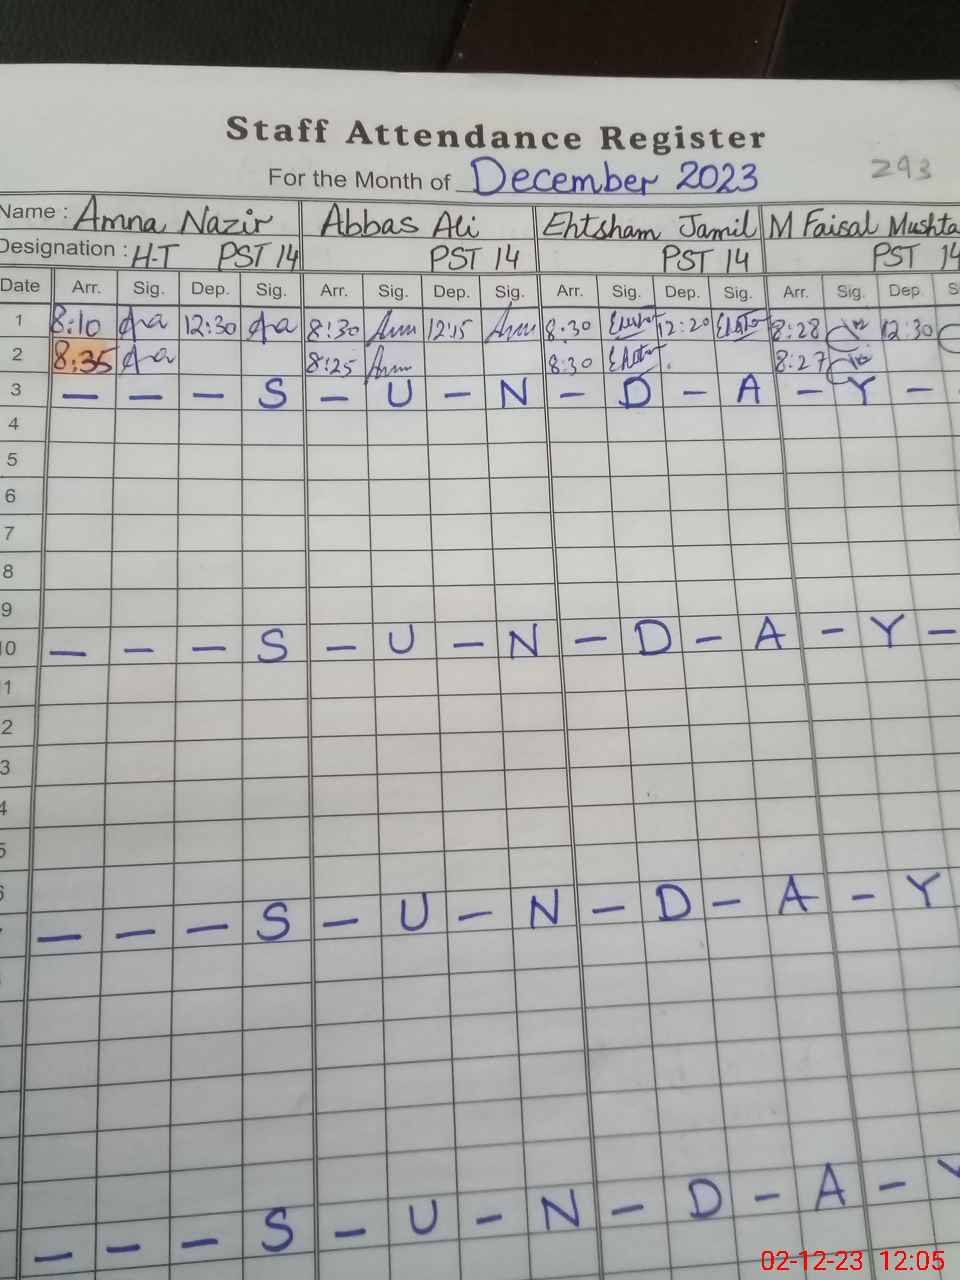 Staff Attendance Register
For the Month of December 2023
293
Name : Amna Nazir Abbas Ali Ehtsham Jamil M Faisal Mushta
Designation : H-T PST 14 PST 14 PST 14 PST 14
Date Arr. Sig. Dep. Sig. Arr. Sig. Dep. Sig. Arr. Sig. Dep. Sig. Arr. Sig. Dep. S
1 8:10 12:30 8:30 12:15 8:30 12:20 8:28 12:30
2 8:35 8:25 8:30 8:27
3 — — — S — U — N — D — A — Y —
4
5
6
7
8
9
0 — — — S — U — N — D — A — Y —
1
2
3
4
5
6
— — — S — U — N — D — A — Y
— — — S — U — N — D — A — Y
02-12-23 12:05